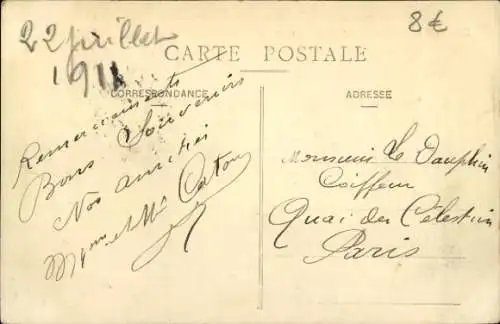 22 juillet
1911
8€
CARTE POSTALE
CORRESPONDANCE
ADRESSE
Remerciements
Bons Souvenirs
Nos amitiés
Mr et Me
Monsieur Le Dauphin
Coiffeur
Quai des Célestins
Paris